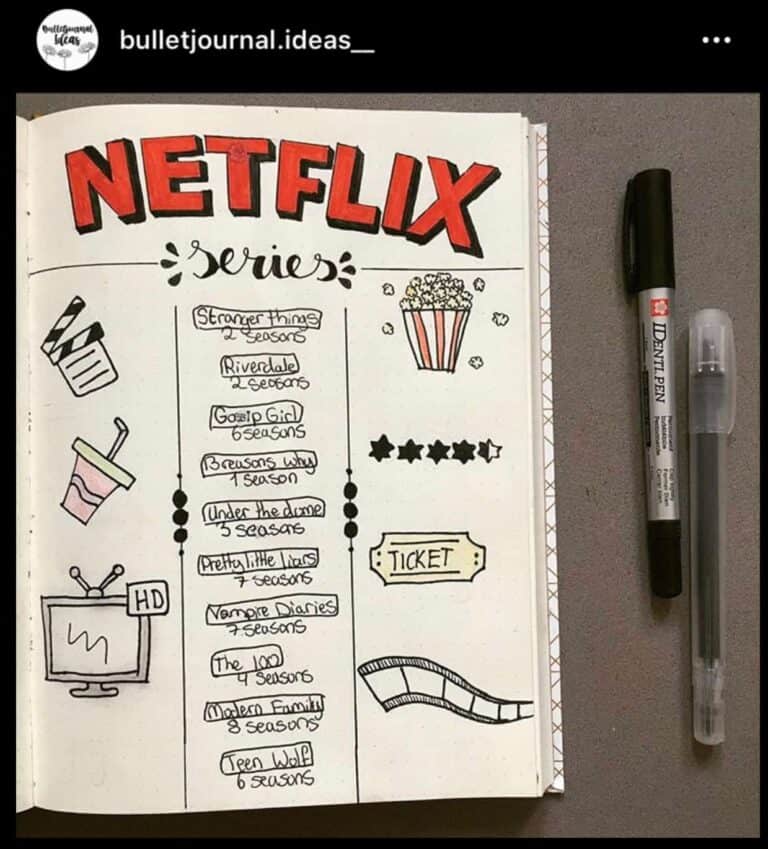 bulletjournal
ideas
bulletjournal.ideas__
NETFLIX
series
Stranger things
2 seasons
Riverdale
2 seasons
Gossip Girl
6 seasons
13 reasons why
1 season
Under the dome
3 seasons
Pretty little liars
7 seasons
Vampire Diaries
7 seasons
The 100
4 seasons
Modern Family
8 seasons
Teen Wolf
6 seasons
HD
TICKET
IDENTI.PEN